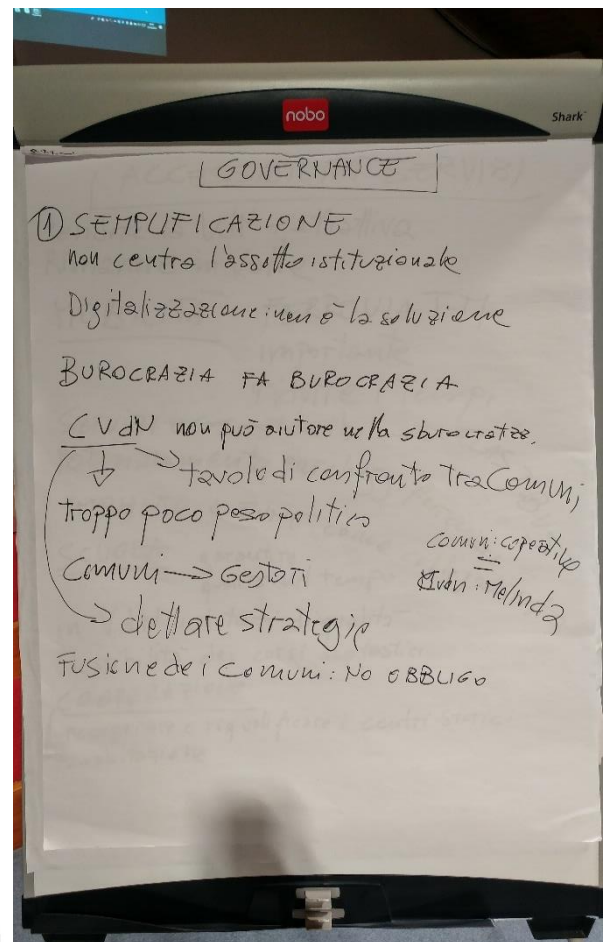 nobo
Shark
GOVERNANCE
① SEMPLIFICAZIONE
non centra l'assetto istituzionale
Digitalizzazione: non è la soluzione
BUROCRAZIA FA BUROCRAZIA
CVdN non può aiutare nella sburocratizz.
tavolo di confronto tra Comuni
troppo poco peso politico
Comuni → Gestori
Comuni: coperativo
=
CVdN: Melinda
dettare strategie
Fusione dei Comuni: NO OBBLIGO